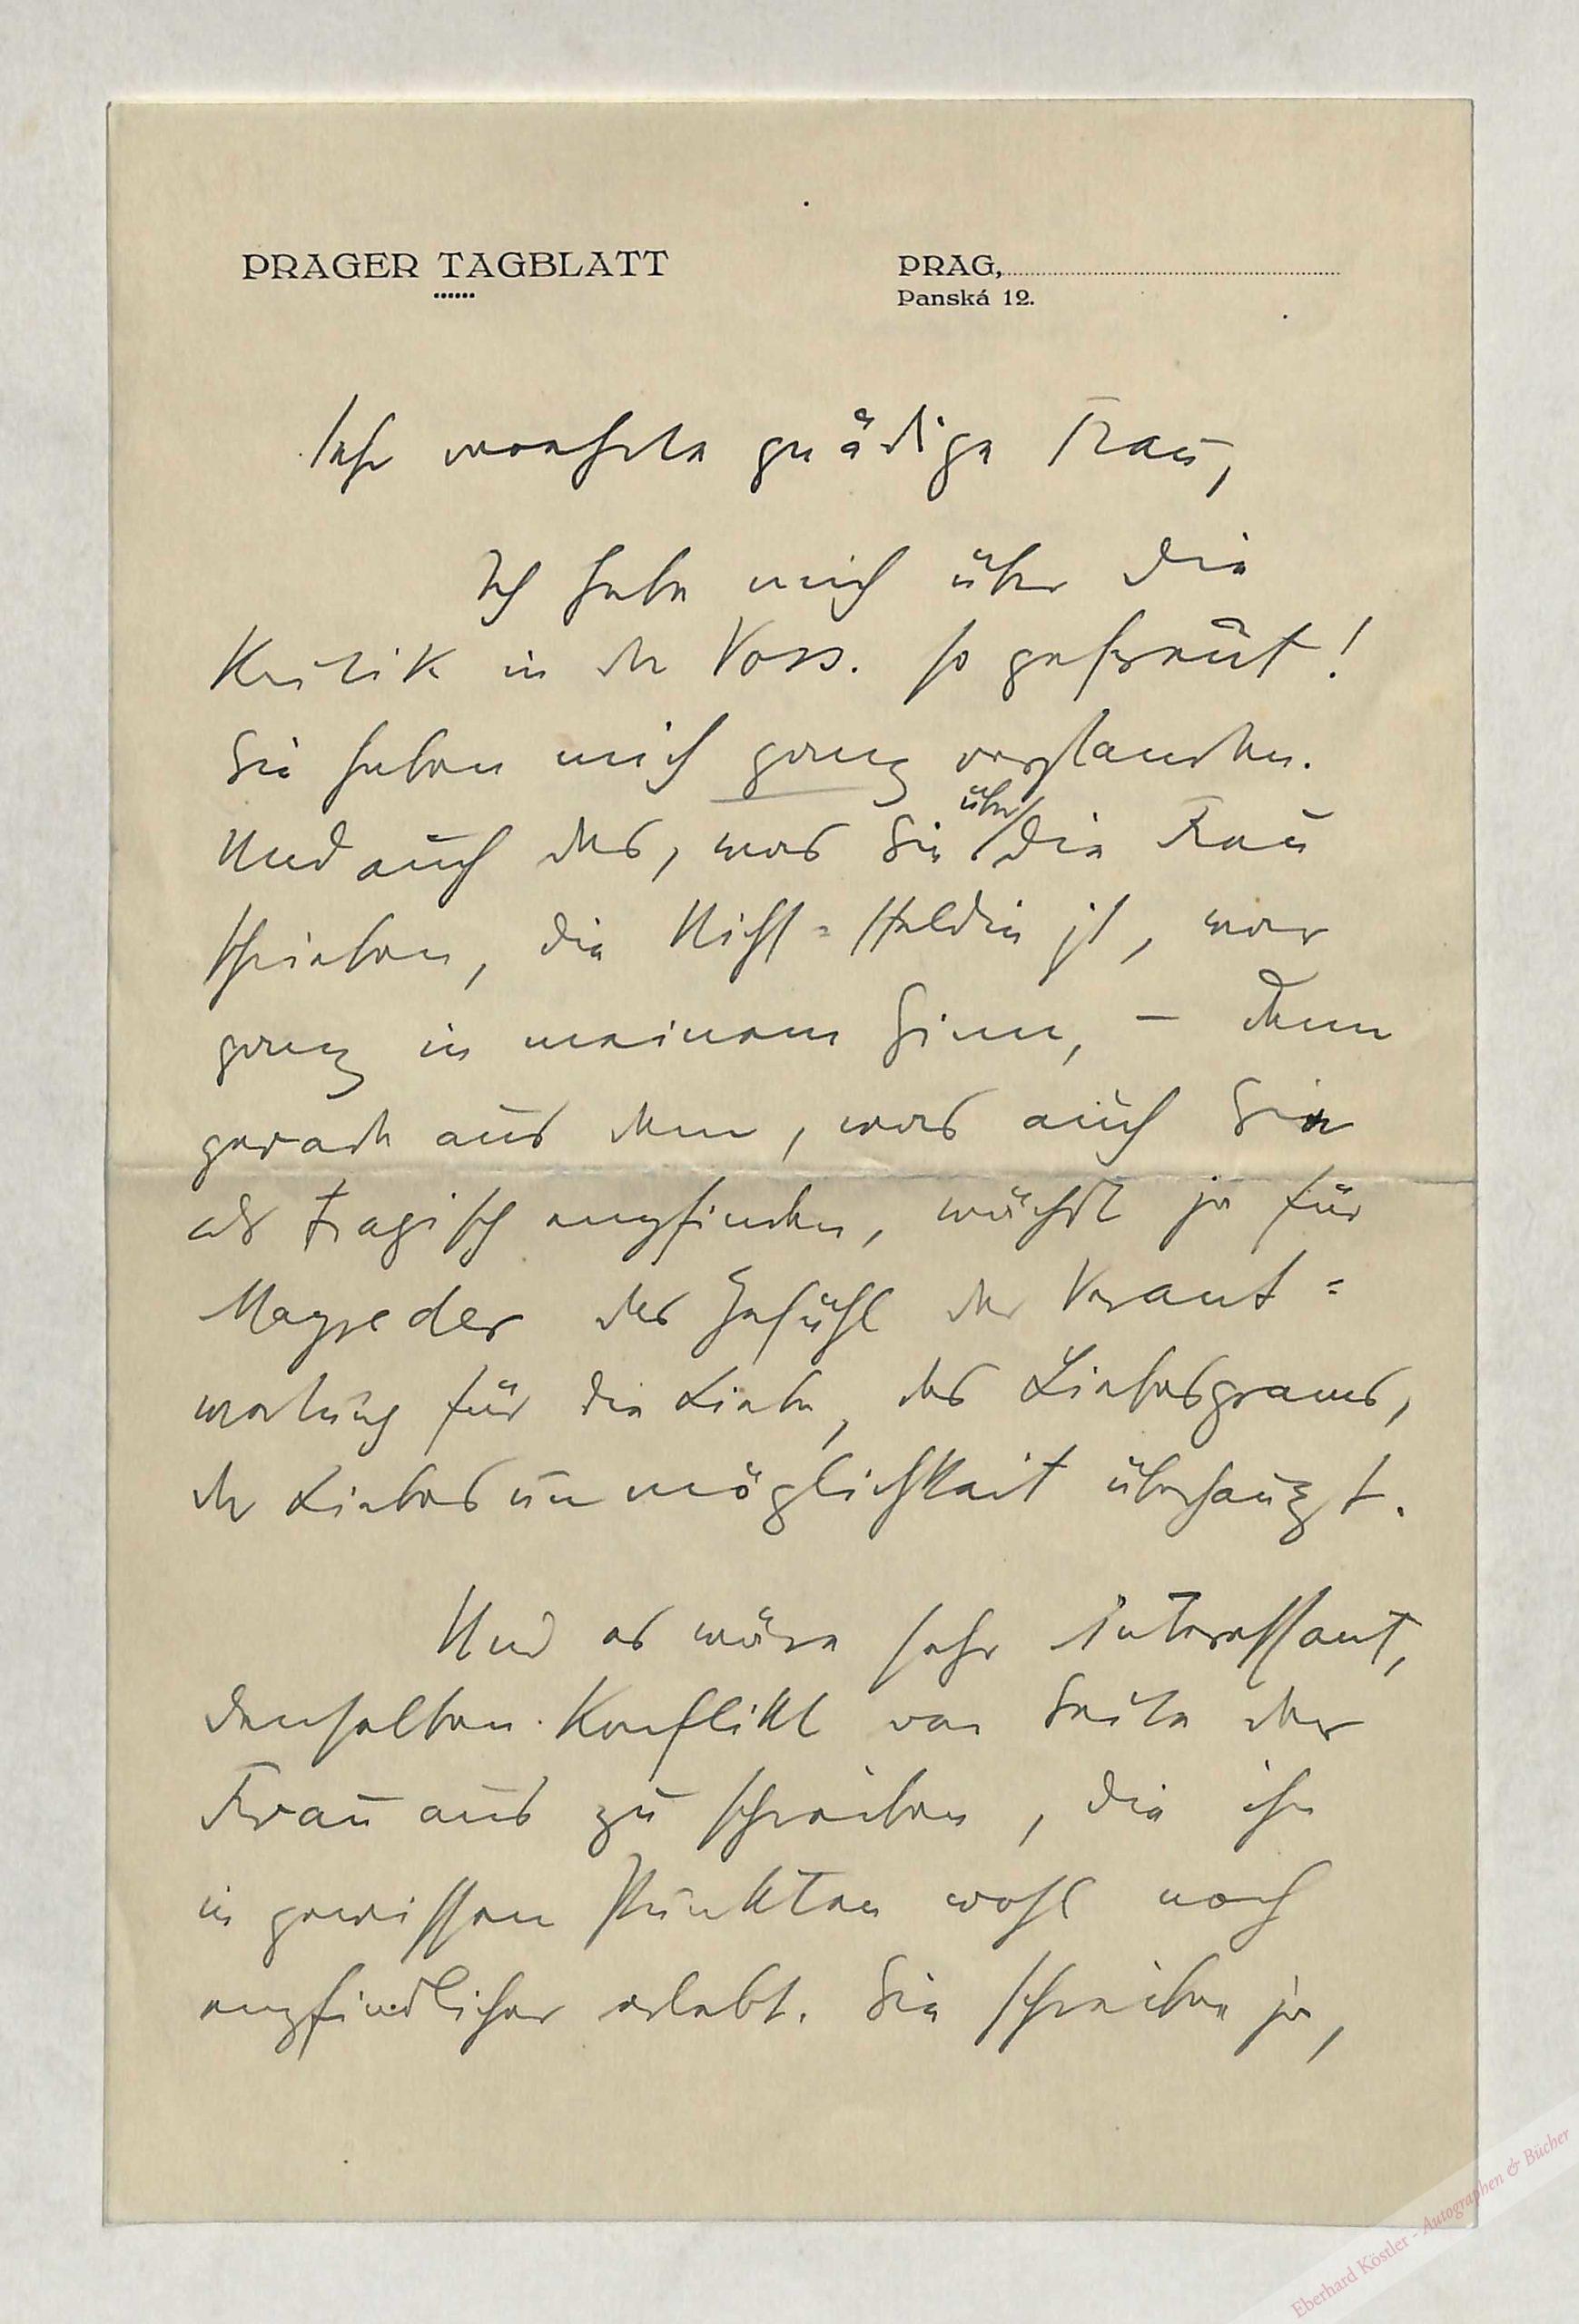 PRAGER TAGBLATT
PRAG,
Panská 12.
Sehr verehrte gnädige Frau,
Ich habe mich über die
Kritik in der Voss. so gefreut!
Sie haben mich ganz verstanden.
Und auch das, was Sie über die Frau
schrieben, die Nicht-Heldin ist, war
ganz in meinem Sinn, – denn
gerade aus dem, was auch Sie
als tragisch empfinden, wächst ja für
Mayreder das Gefühl der Verant-
wortung für die Liebe, des Liebesgrams,
der Liebesunmöglichkeit überhaupt.
Und es wäre sehr interessant,
denselben Konflikt von Seite der
Frau aus zu schreiben, die ihn
in gewissen Punkten wohl noch
empfindlicher erlebt. Sie schreiben ja,
Eberhard Köstler - Autographen & Bücher